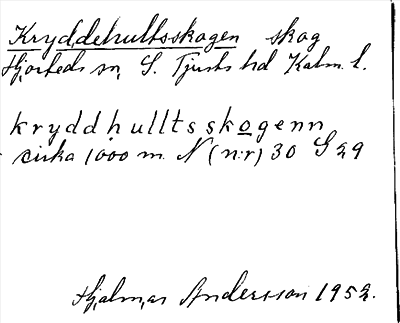 Kryddehultsskogen skog
Hjorteds sn, S. Tjusts hd Kalm. l.
kryddhulltsskogenn
cirka 1000 m. N (n:r) 30 S 29
Hjalmar Andersson 1952.